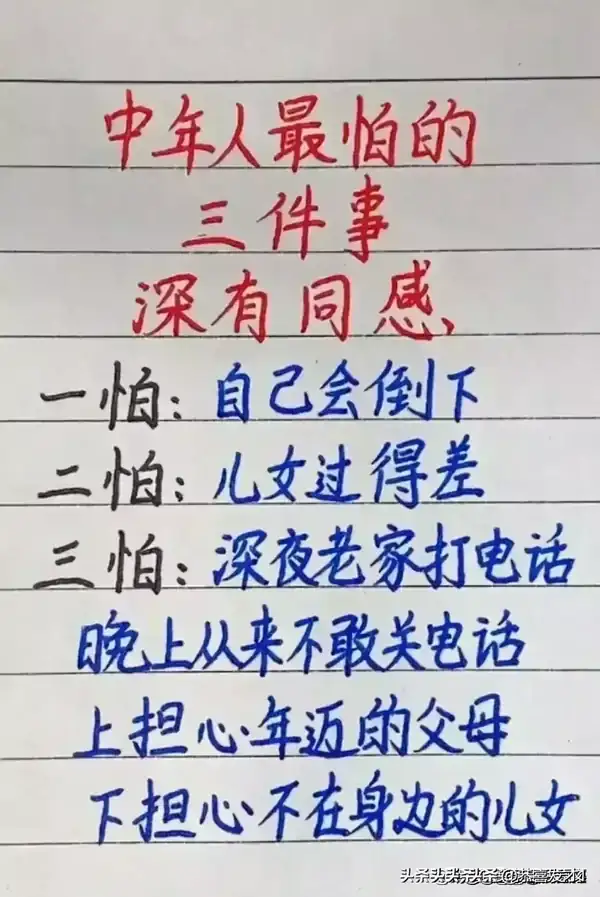 中年人最怕的
三件事
深有同感、
一怕：自己会倒下
二怕：儿女过得差
三怕：深夜老家打电话
晚上从来不敢关电话
上担心年迈的父母
下担心不在身边的儿女